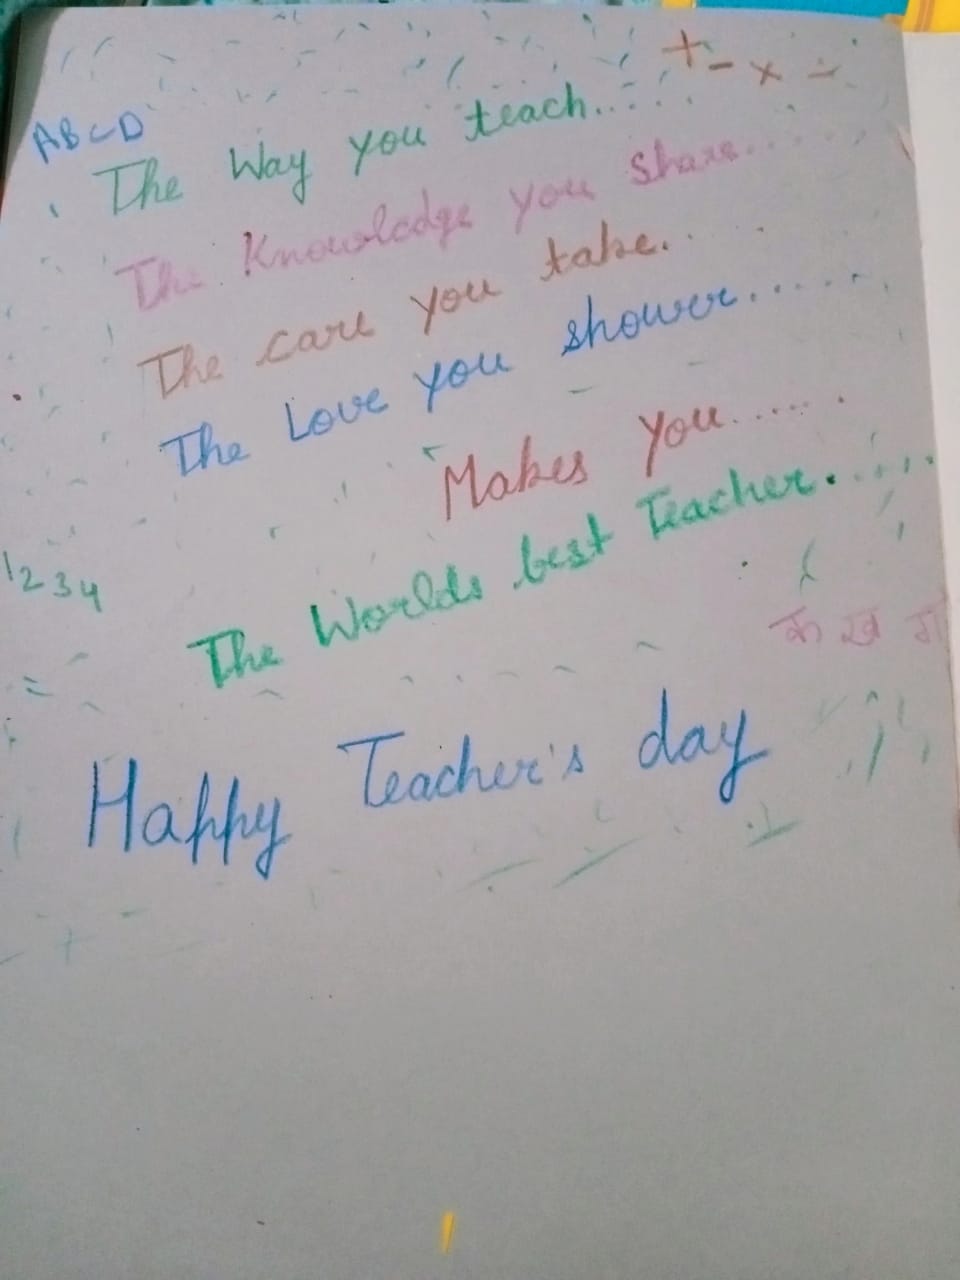 + - × ÷
ABCD
The Way you teach.......
The Knowledge you share......
The care you take...
The Love you shower.......
Makes You.......
The Worlds best Teacher......
1 2 3 4
क ख ग
Happy Teacher's day